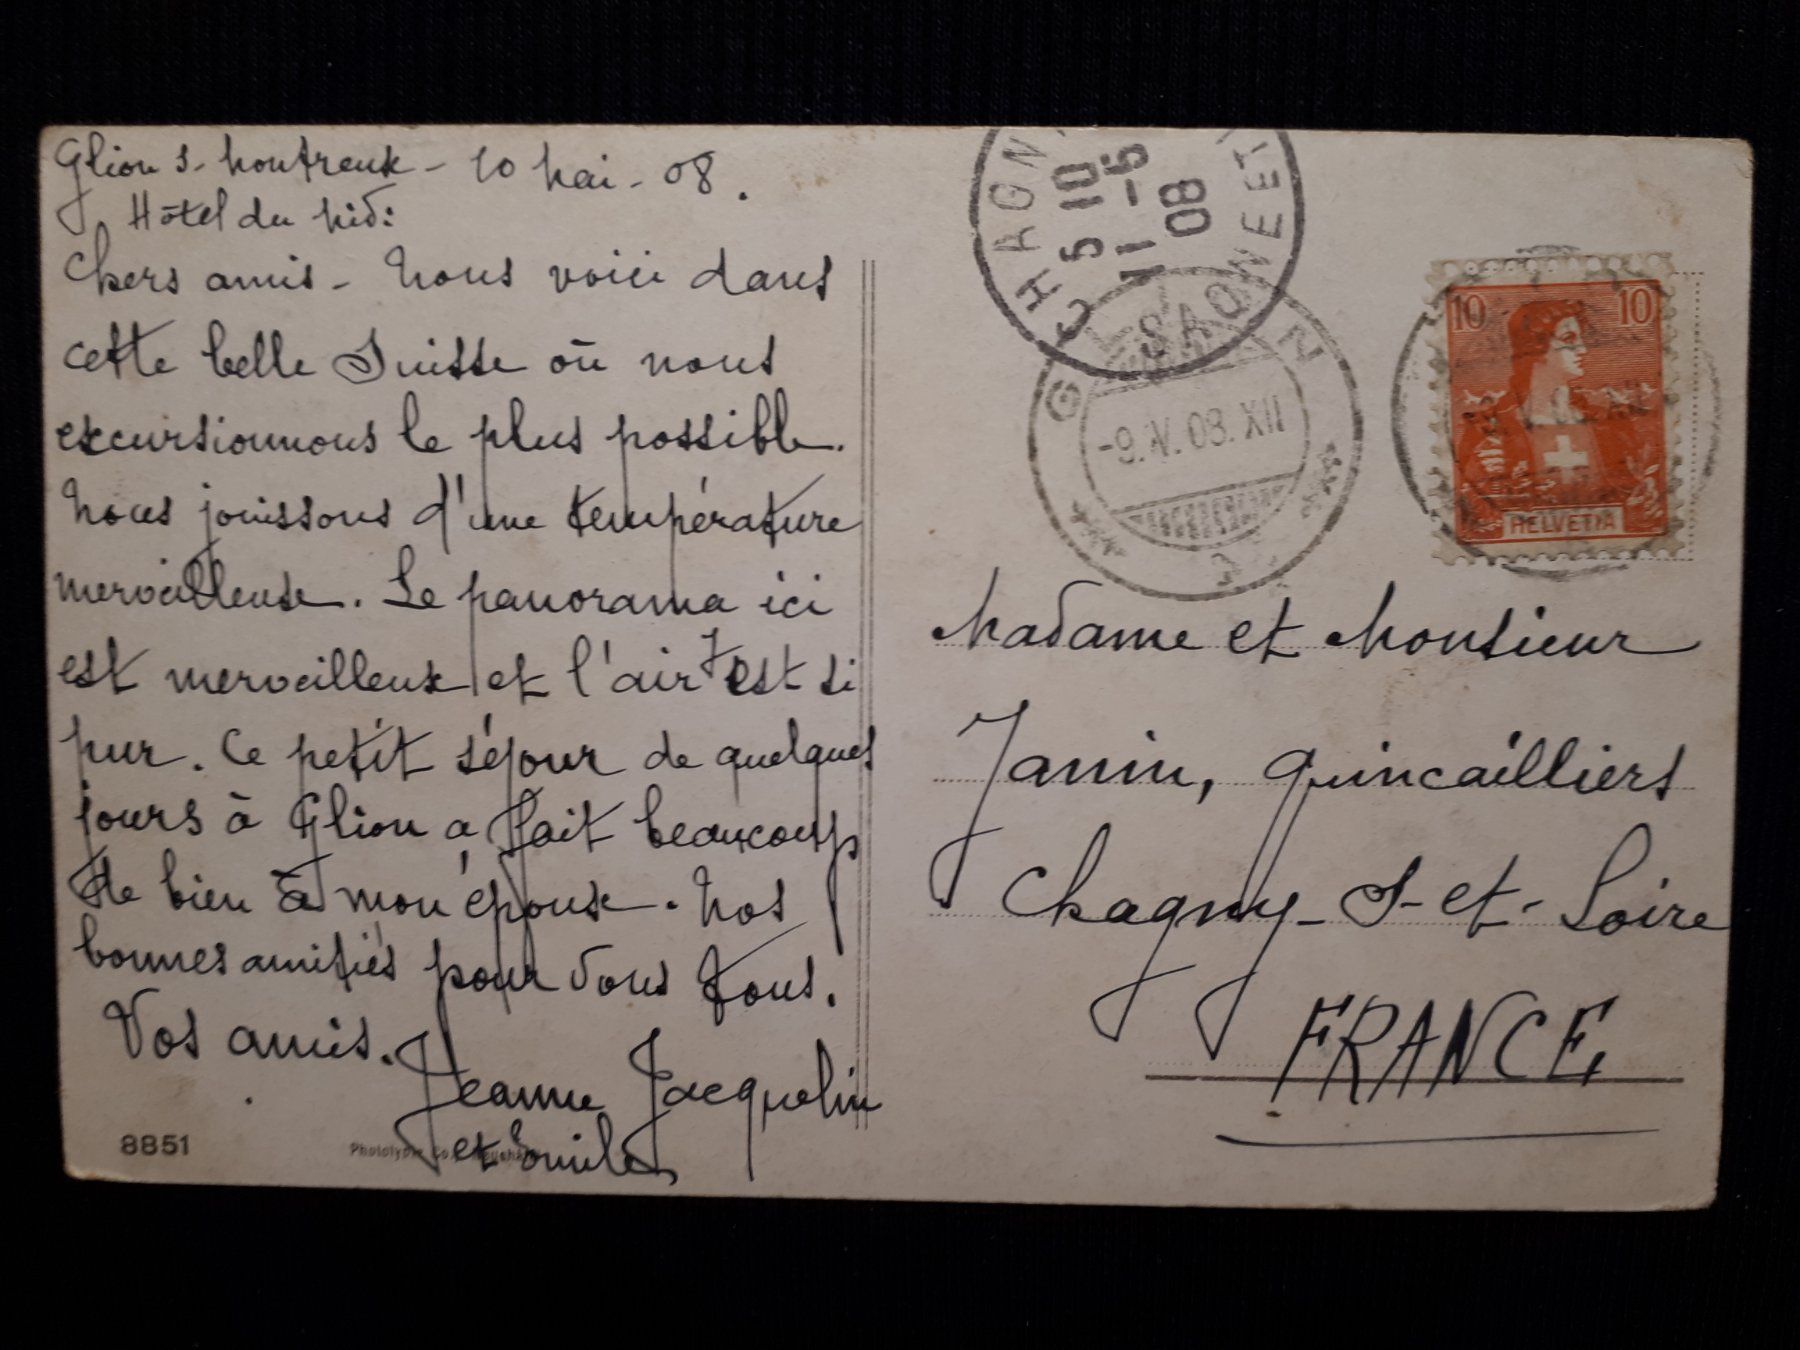 Glion s- Montreux - 10 Mai - 08.
Hôtel du Midi
Chers amis - Nous voici dans
cette belle Suisse où nous
excursionnons le plus possible.
Nous jouissons d'une température
merveilleuse. Le panorama ici
est merveilleux et l'air y est si
pur. Ce petit séjour de quelques
jours à Glion a fait beaucoup
de bien à mon épouse. Nos
bonnes amitiés pour vous tous.
Vos amis.
Jeanne Jacquelin
et Emile
8851
Phototypie Co.
CHAGNY
5 10
11 - 5
08
SAONE ET
GLION
-9.V.08.XII
10 10
HELVETIA
Madame et Monsieur
Janin, quincailliers
Chagny - S-et-Loire
FRANCE